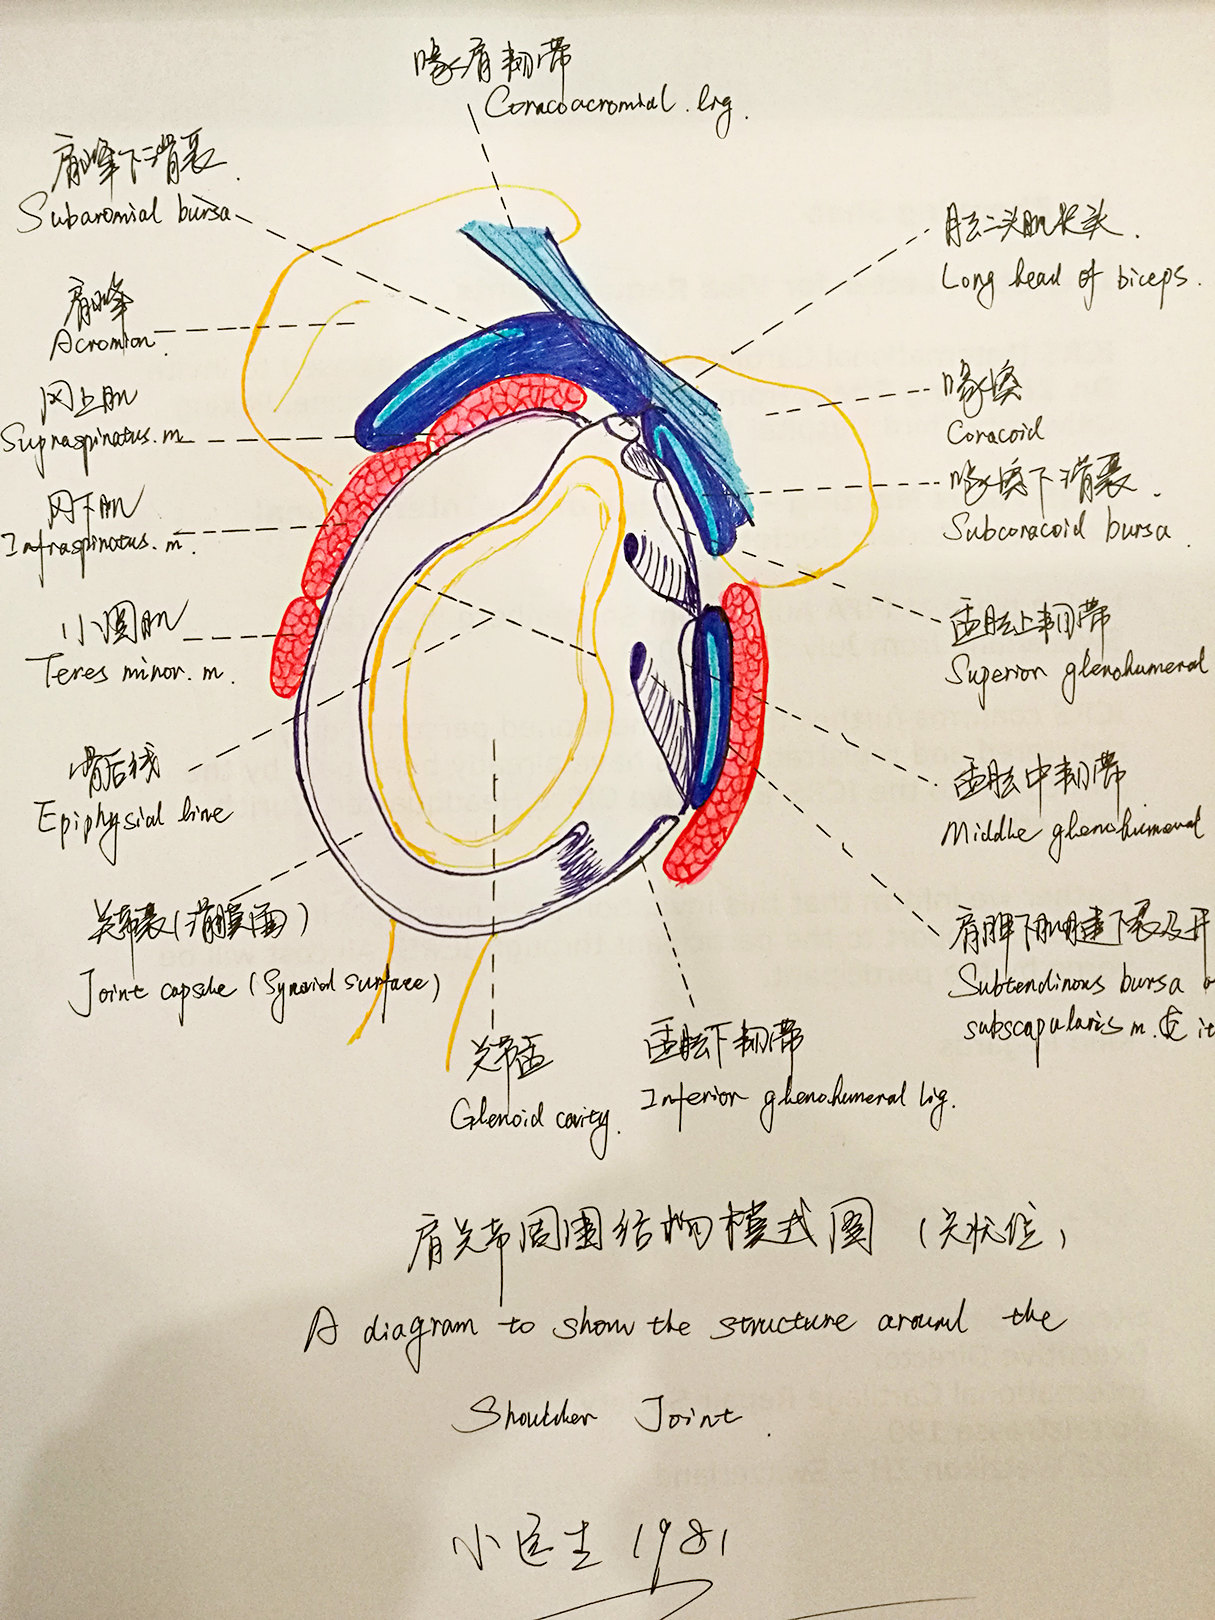 喙肩韧带
Coracoacromial. lig.
肩峰下滑囊.
Subaromial bursa
肩峰
Acromion.
冈上肌
Supraspinatus. m
冈下肌
Infraspinatus. m.
小圆肌
Teres minor. m.
骨后线
Epiphysial line
关节囊(滑膜面)
Joint capsule (Synovial surface)
肱二头肌长头.
Long head of biceps.
喙突
Coracoid
喙突下滑囊.
Subcoracoid bursa.
盂肱上韧带
Superior glenohumeral
盂肱中韧带
Middle glenohumeral
肩胛下肌腱下囊及开
Subtendinous bursa
subscapularis m. & it
关节盂
Glenoid cavity.
盂肱下韧带
Inferior glenohumeral lig.
肩关节周围结构模式图 (矢状位)
A diagram to show the structure around the
Shoulder Joint.
小医生 1981